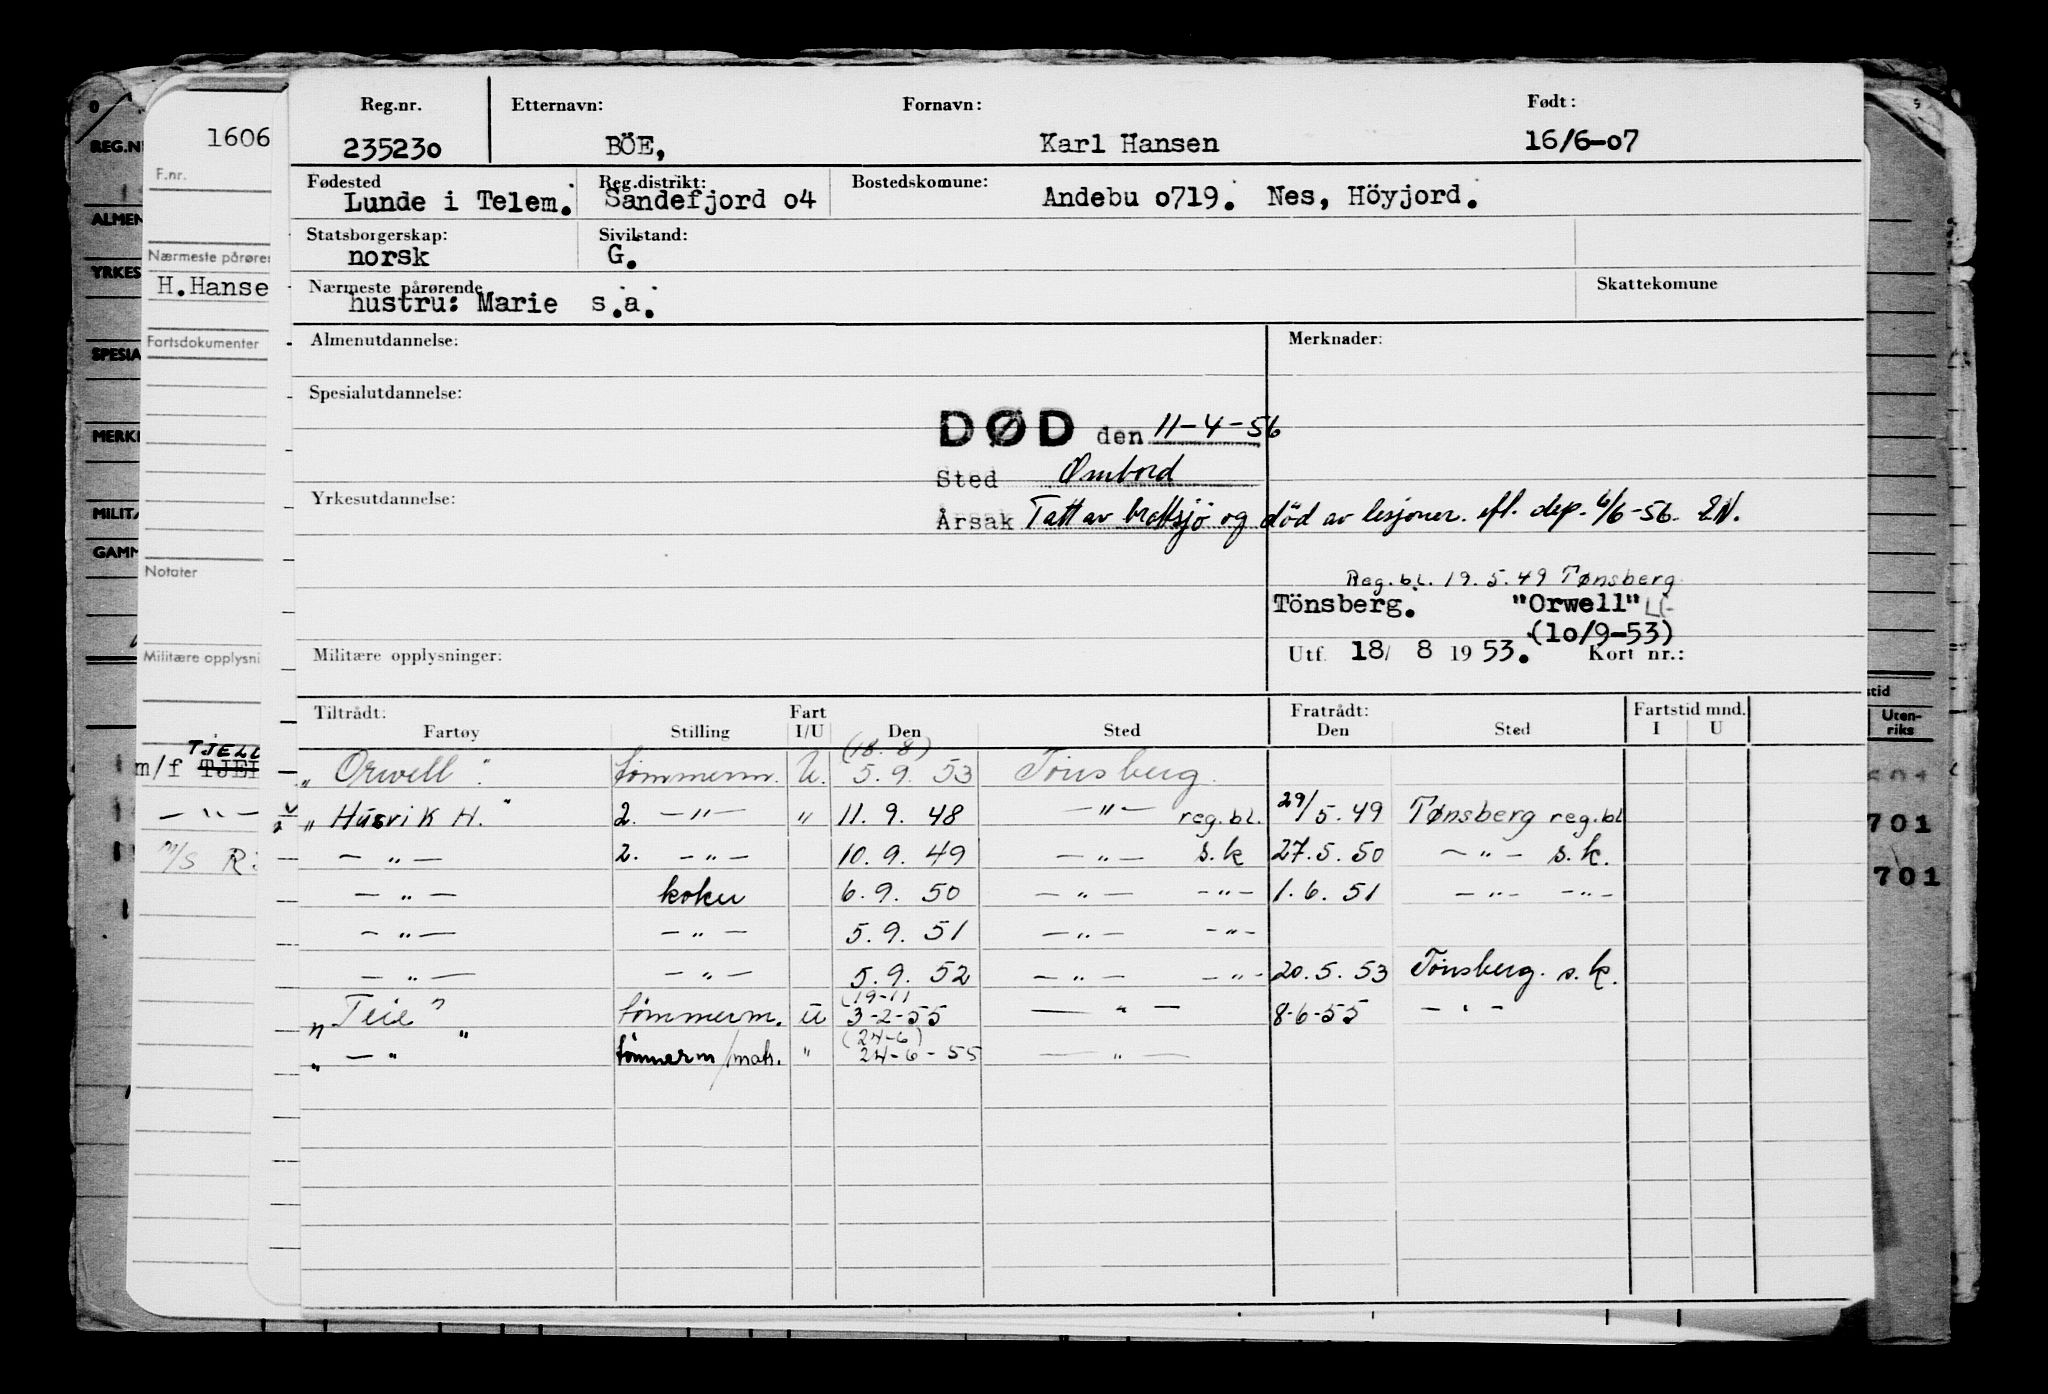 Reg.nr. Etternavn: Fornavn: Født:
235230 BÖE, Karl Hansen 16/6-07
Fødested Reg.distrikt: Bostedskomune:
Lunde i Telem. Sandefjord o4 Andebu o719. Nes, Höyjord.
Statsborgerskap: Sivilstand:
norsk G.
Nærmeste pårørende Skattekomune
hustru: Marie s.a.
Almenutdannelse: Merknader:
Spesialutdannelse:
DØD den 11-4-56
Sted Ombord
Yrkesutdannelse:
Årsak Tatt av brottsjö og död av lesjoner. efl. dep. 6/6-56. EN.
Reg. bl. 19.5.49 Tønsberg
Tönsberg. "Orwell"
(lo/9-53)
Militære opplysninger: Utf. 18/ 8 19 53. Kort nr.:
Tiltrådt: Fart Fratrådt: Fartstid mnd.
Fartøy Stilling I/U Den Sted Den Sted I U
(18. 8)
"Orwell". tømmerm. U. 5. 9. 53 Tönsberg.
"Husvik H." 2. — " — " 11. 9. 48 — " — reg. bl. 29/5. 49 Tønsberg reg. bl
— " — 2. — " — 10. 9. 49 — " — s.k 27. 5. 50 — " — s. k.
— " — koker 6. 9. 50 — " — — " — 1. 6. 51 — " — — " —
— " — — " — 5. 9. 51 — " — — " —
— " — — " — 5. 9. 52 — " — — " — 20. 5. 53 Tönsberg. s. k.
(19-11)
"Teie" tömmerm. U 3-2-55 — " — 8-6-55 — " —
(24-6)
" — " " tömmerm/mats. " 24-6-55 — " —
1606
F.nr.
Nærmeste pårører
H.Hanse
Fartsdokumenter
Notater
Militære opplysni
TJELD
m/f TJEL
— " —
m/s R
REG.N
ALMEN
YRKES
SPESIA
MERK
MILIT
GAMM
Uten-
riks
701
701